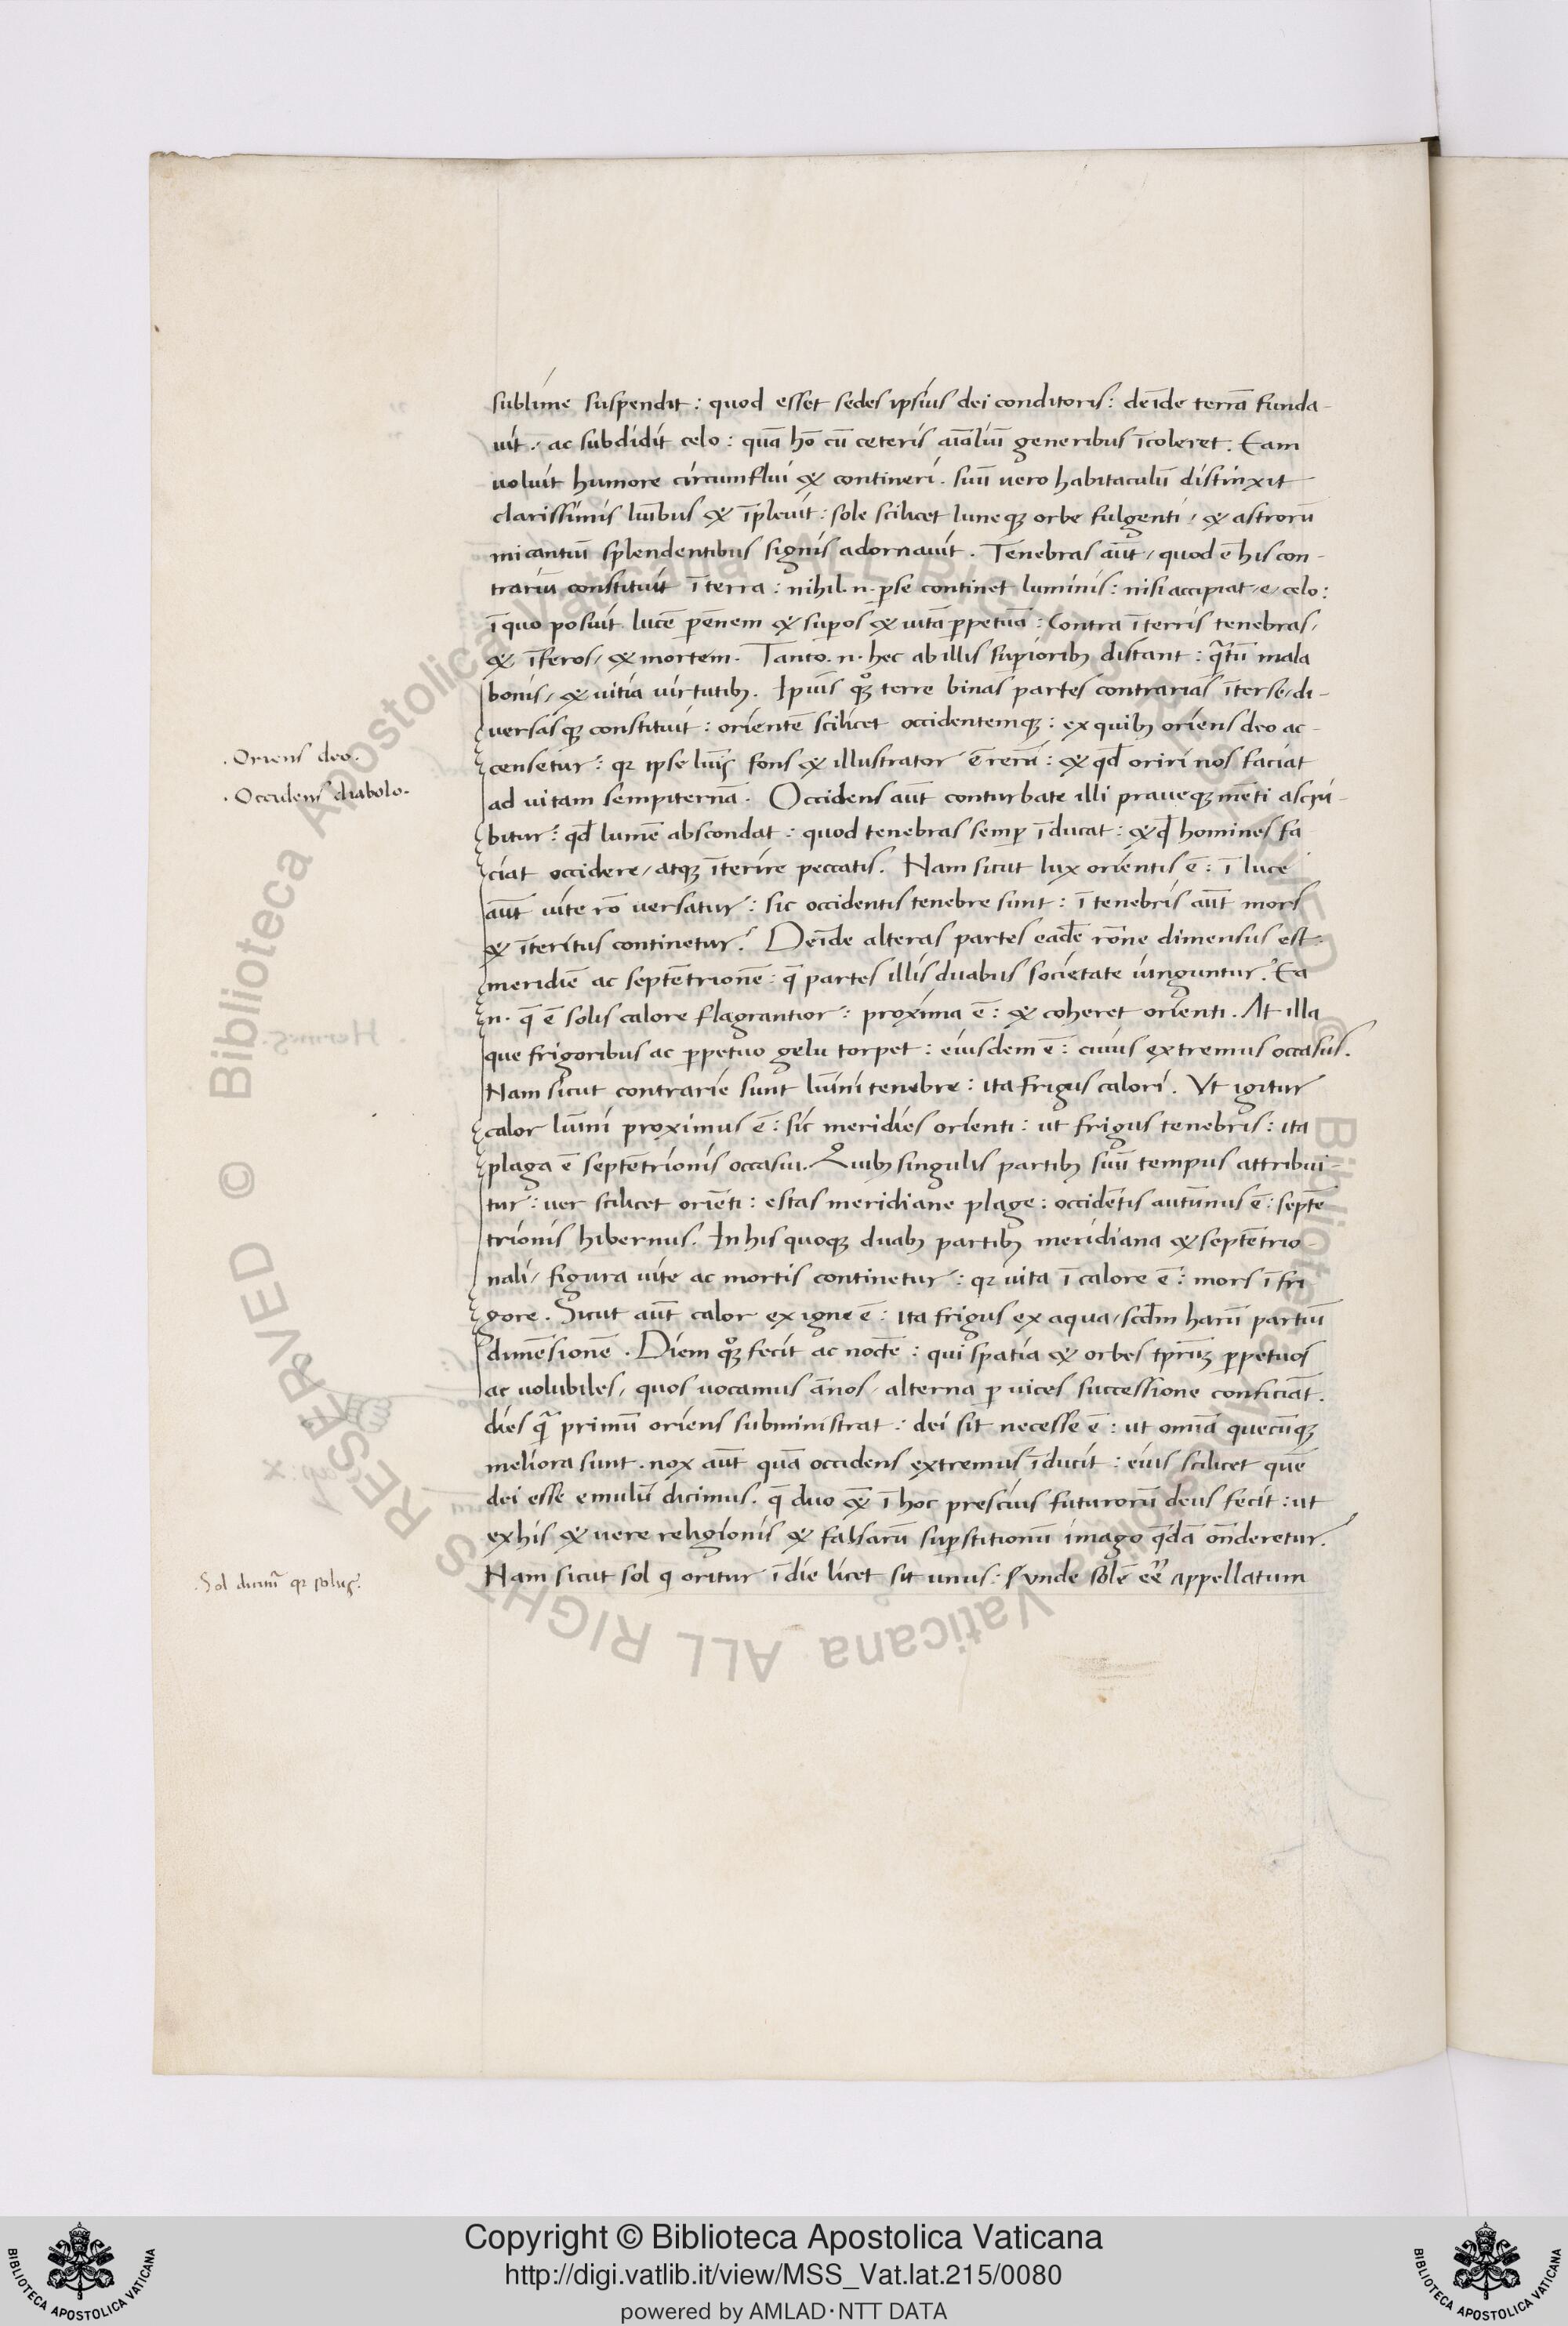 sublime suspendit: quod esset sedes ipsius dei conditoris: deīde terrā funda-
uit: ac subdidit celo: quā hō cū ceteris aīaliū generibus īcoleret. Eam
uoluit humore circumflui & contineri. suū uero habitaculū distinxit
clarissimis luībus & īpleuit: sole scilicet luneqꝫ orbe fulgenti / & astrorū
micantiū splendentibus signis adornauit. Tenebras aūt / quod ē his con-
trariū constituit ī terra: nihil .n. ꝑ se continet luminis: nisi accipiat / e / celo:
ī quo posuit lucē ꝑēnem & suꝑos & uitā ꝑpetuā: Contra ī terris tenebras /
& īferos / & mortem. Tanto .n. hec ab illis suꝑioribꝫ distant: qᵃ̄tū mala
bonis / & uitia uirtutibꝫ. Ipiuˢ qᵒꝫ terre binas partes contrarias īter se / di-
uersasqꝫ constituit: orientē scilicet occidentemqꝫ: ex quibꝫ oriens deo ac-
censetur: qꝛ ipse luīs fons & illustrator ē rerū: & qd̄ oriri nos faciat
ad uitam sempiternā. Occidens aūt conturbate illi praueqꝫ mēti ascri-
bitur: qd̄ lumē abscondat: quod tenebras semꝑ īducat: & qd̄ homines fa
ciat occidere / atqꝫ īterire peccatis. Nam sicut lux orientis ē: ī luce
aūt uite rō uersatur: sic occidentis tenebre sunt: ī tenebris aūt mors
& īteritus continetur. Deīde alteras partes eadē rōne dimensus est:
meridiē ac septētrionē: q̄ partes illis duabus societate iunguntur. Ea
.n. q̄ ē solis calore flagrantior: proxima ē: & coheret orienti. At illa
que frigoribus ac ꝑpetuo gelu torpet: eiusdem ē: cuius extremus occasus.
Nam sicut contrarie sunt luīni tenebre: ita frigus calori. Vt igitur
calor luīni proximus ē: sic meridies orienti: ut frigus tenebris: ita
plaga ē septētrionis occasui. Quibꝫ singulis partibꝫ suū tempus attribui-
tur: uer scilicet oriēti: estas meridiane plage: occidētis autūnus ē: septē
trionis hibernus. In his quoqꝫ duabꝫ partibꝫ meridiana & septētrio-
nali / figura uite ac mortis continetur: qꝛ uita ī calore ē: mors ī fri
gore. Sicut aūt calor ex igne ē: ita frigus ex aqua / scd̄m harū partiū
dimēsionē. Diem qᵒꝫ fecit ac noctē: qui spatia & orbes tꝑrūꝫ ꝑpetuos
ac uolubiles / quos uocamus ānos / alterna ꝑ uices successione conficiāt.
dies qᵃ̄ primū oriens subministrat: dei sit necesse ē: ut omīa quecūqꝫ
meliora sunt. nox aūt quā occidens extremus īducit: eius scilicet quē
dei esse emulū dicimus. q̄ duo ī hoc prescius futurorū deus fecit: ut
ex his & uere religionis & falsarū suꝑstitionū imago q̄dā ōnderetur.
Nam sicut sol q oritur ī die licet sit unus: unde solē eē appellatum
.Oriens deo.
.Occidens diabolo.
.Sol dicitur qꝛ solus.
© Biblioteca Apostolica Vaticana ALL RIGHTS RESERVED
© Biblioteca Apostolica Vaticana ALL RIGHTS RESERVED
Copyright © Biblioteca Apostolica Vaticana
http://digi.vatlib.it/view/MSS_Vat.lat.215/0080
powered by AMLAD·NTT DATA
BIBLIOTECA APOSTOLICA VATICANA
BIBLIOTECA APOSTOLICA VATICANA